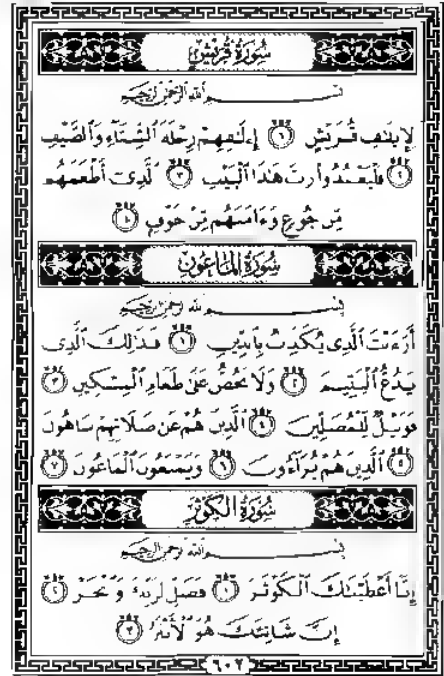 سُورَةُ قُرَيْشٍ
بِسْمِ اللَّهِ الرَّحْمَٰنِ الرَّحِيمِ
لِإِيلَافِ قُرَيْشٍ ١ إِۦلَافِهِمْ رِحْلَةَ الشِّتَاءِ وَالصَّيْفِ
٢ فَلْيَعْبُدُوا رَبَّ هَٰذَا الْبَيْتِ ٣ الَّذِي أَطْعَمَهُم
مِّن جُوعٍ وَءَامَنَهُم مِّنْ خَوْفٍ ٤
سُورَةُ الْمَاعُونِ
بِسْمِ اللَّهِ الرَّحْمَٰنِ الرَّحِيمِ
أَرَءَيْتَ الَّذِي يُكَذِّبُ بِالدِّينِ ١ فَذَٰلِكَ الَّذِي
يَدُعُّ الْيَتِيمَ ٢ وَلَا يَحُضُّ عَلَىٰ طَعَامِ الْمِسْكِينِ ٣
فَوَيْلٌ لِّلْمُصَلِّينَ ٤ الَّذِينَ هُمْ عَن صَلَاتِهِمْ سَاهُونَ
٥ الَّذِينَ هُمْ يُرَاءُونَ ٦ وَيَمْنَعُونَ الْمَاعُونَ ٧
سُورَةُ الْكَوْثَرِ
بِسْمِ اللَّهِ الرَّحْمَٰنِ الرَّحِيمِ
إِنَّا أَعْطَيْنَاكَ الْكَوْثَرَ ١ فَصَلِّ لِرَبِّكَ وَانْحَرْ ٢
إِنَّ شَانِئَكَ هُوَ الْأَبْتَرُ ٣
٦٠٢